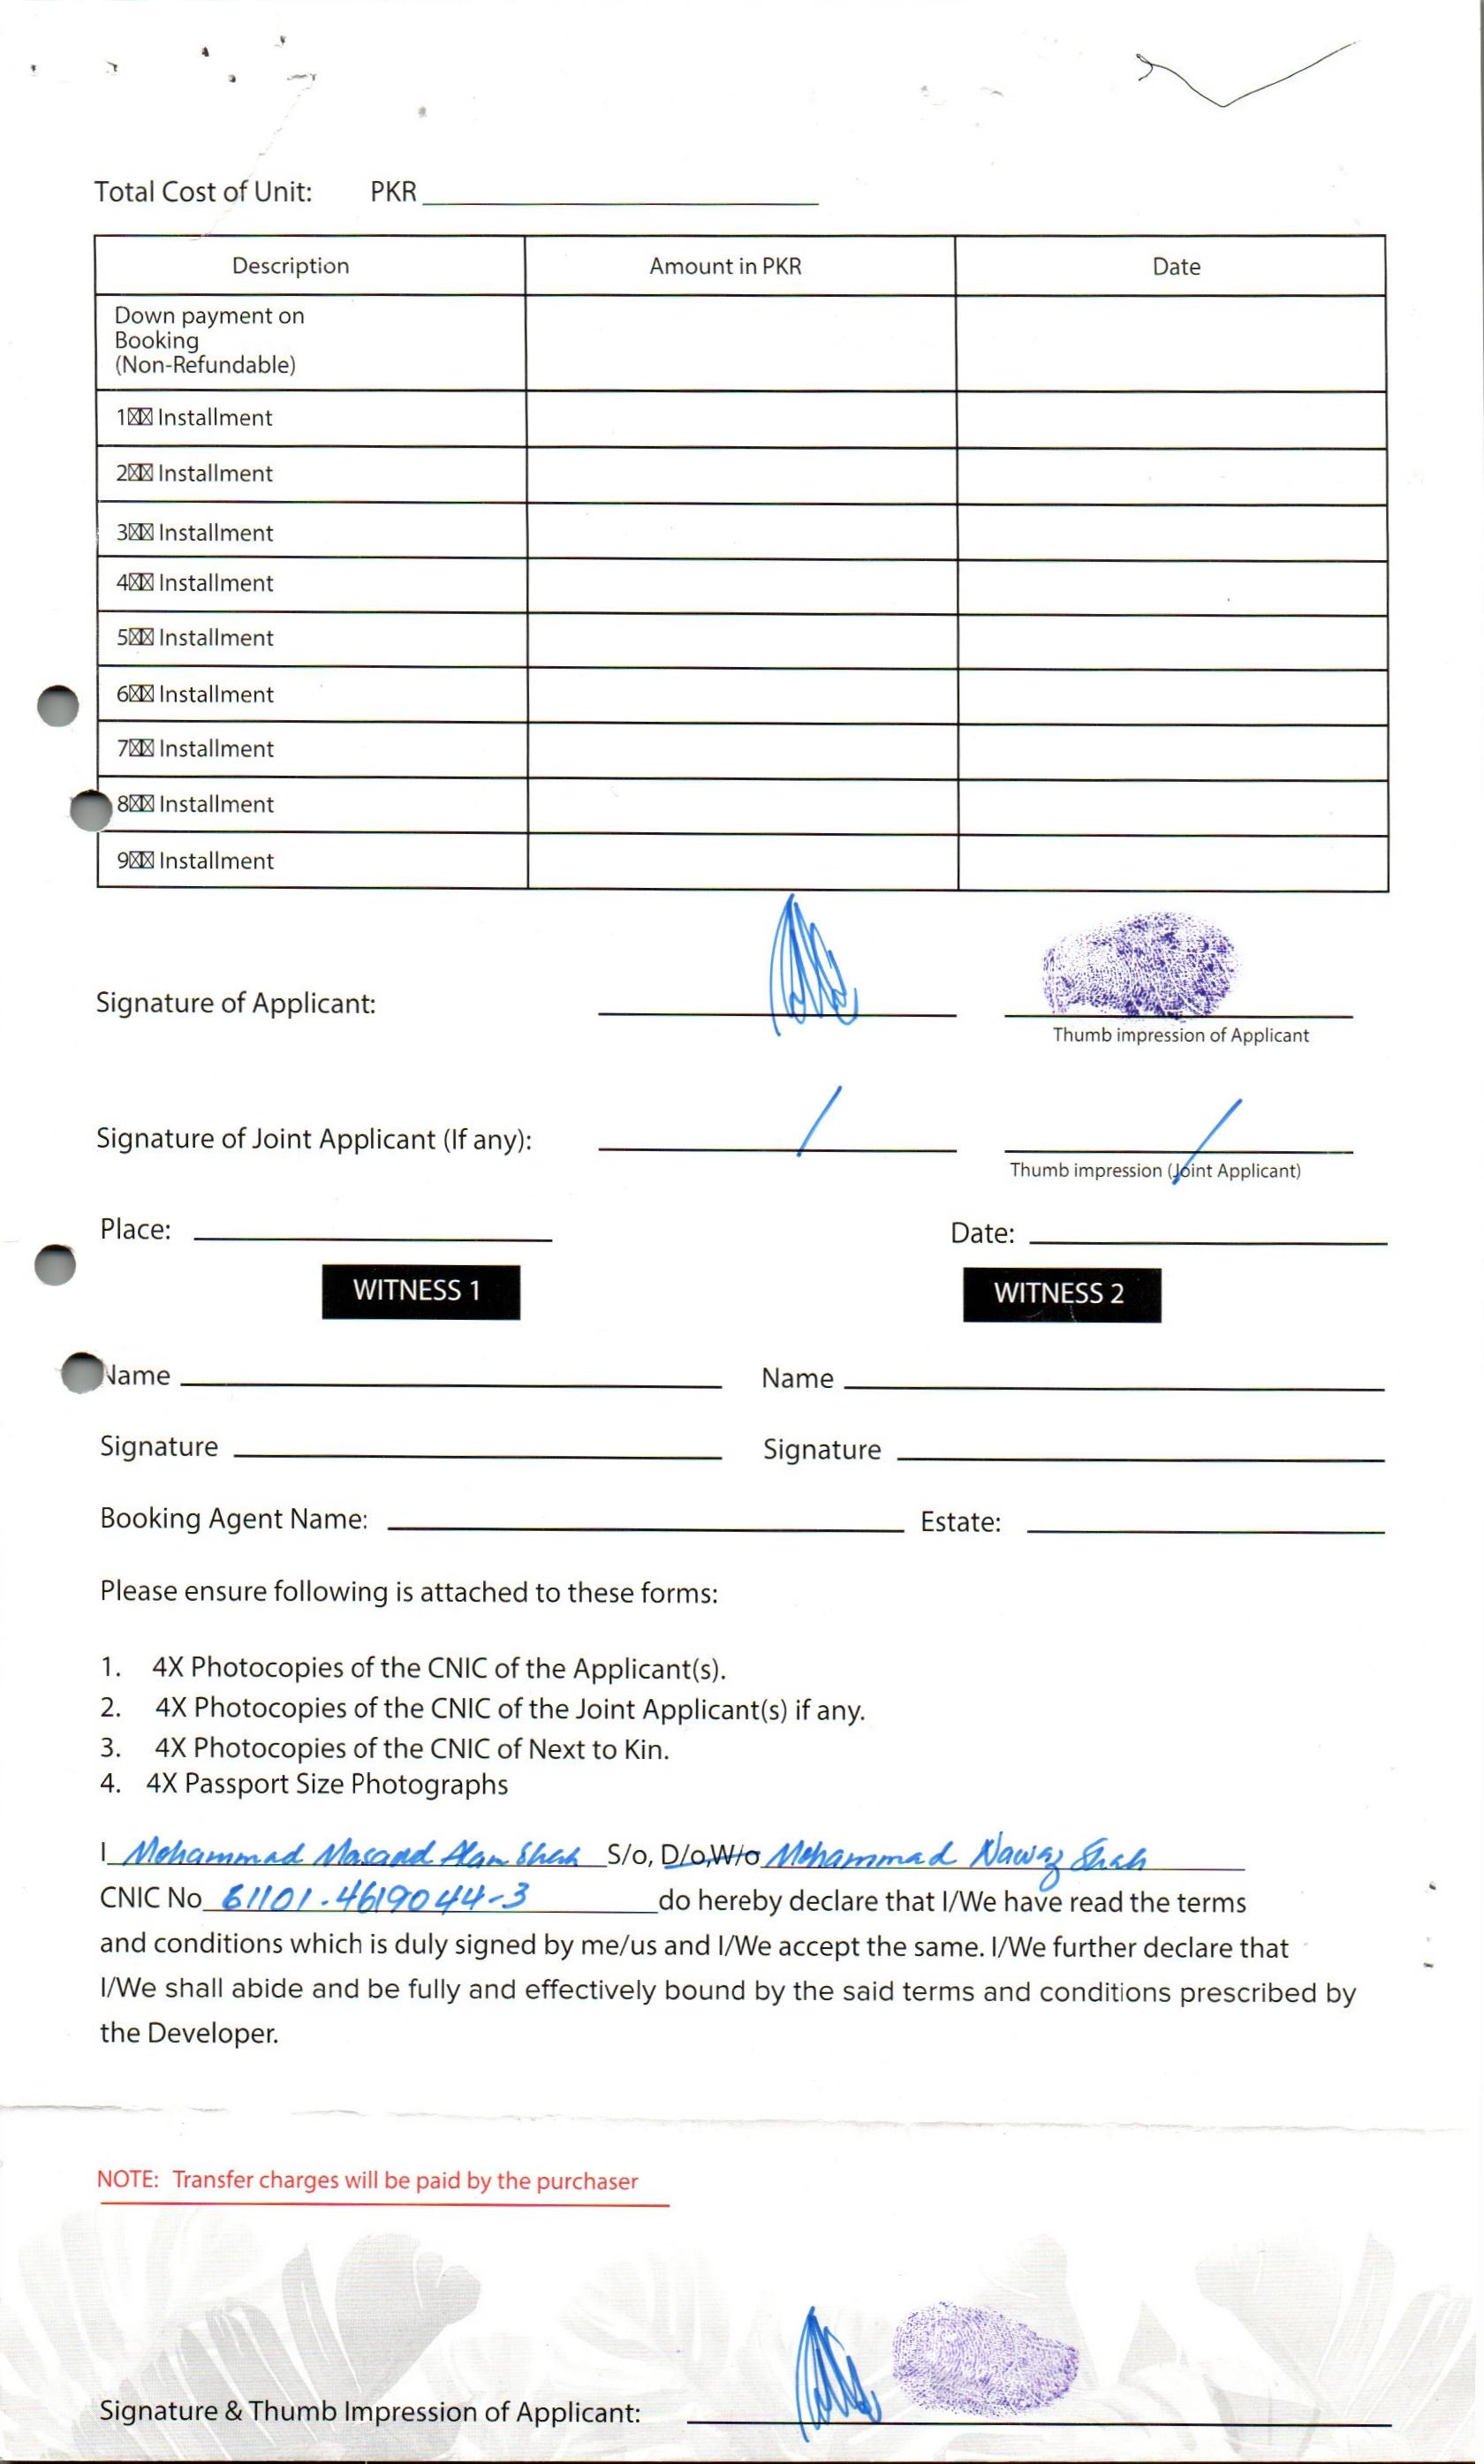 Total Cost of Unit: PKR
Description Amount in PKR Date
Down payment on
Booking
(Non-Refundable)
1☒☒ Installment
2☒☒ Installment
3☒☒ Installment
4☒☒ Installment
5☒☒ Installment
6☒☒ Installment
7☒☒ Installment
8☒☒ Installment
9☒☒ Installment
Signature of Applicant:
Thumb impression of Applicant
Signature of Joint Applicant (If any):
Thumb impression (Joint Applicant)
Place: Date:
WITNESS 1 WITNESS 2
Name Name
Signature Signature
Booking Agent Name: Estate:
Please ensure following is attached to these forms:
1. 4X Photocopies of the CNIC of the Applicant(s).
2. 4X Photocopies of the CNIC of the Joint Applicant(s) if any.
3. 4X Photocopies of the CNIC of Next to Kin.
4. 4X Passport Size Photographs
I Mohammad Masaad Alam Shah S/o, D/o,W/o Mohammad Nawaz Shah
CNIC No 61101-4619044-3 do hereby declare that I/We have read the terms
and conditions which is duly signed by me/us and I/We accept the same. I/We further declare that
I/We shall abide and be fully and effectively bound by the said terms and conditions prescribed by
the Developer.
NOTE: Transfer charges will be paid by the purchaser
Signature & Thumb Impression of Applicant: